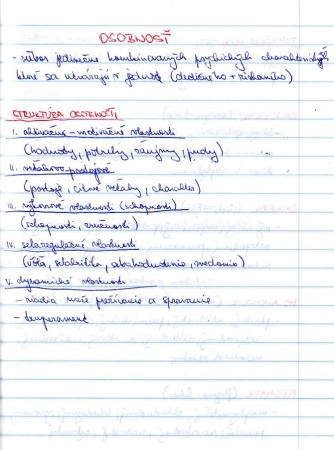 OSOBNOSŤ
- súbor jedinečne kombinovaných psychických charakteristík
ktoré sa utvárajú v jednotu (dedičného + získaného)
ŠTRUKTÚRA OSOBNOSTI
I. aktivačno - motivačné vlastnosti
(hodnoty, potreby, záujmy, pudy)
II. vzťahovo-postojové
(postoje, citové vzťahy, charakter)
III. výkonové vlastnosti (schopnosti)
(schopnosti, zručnosti)
IV. sebaregulačné vlastnosti
(vôľa, sebakritika, svedomie)
V. dynamické vlastnosti
- riadia naše prežívanie a správanie
- temperament